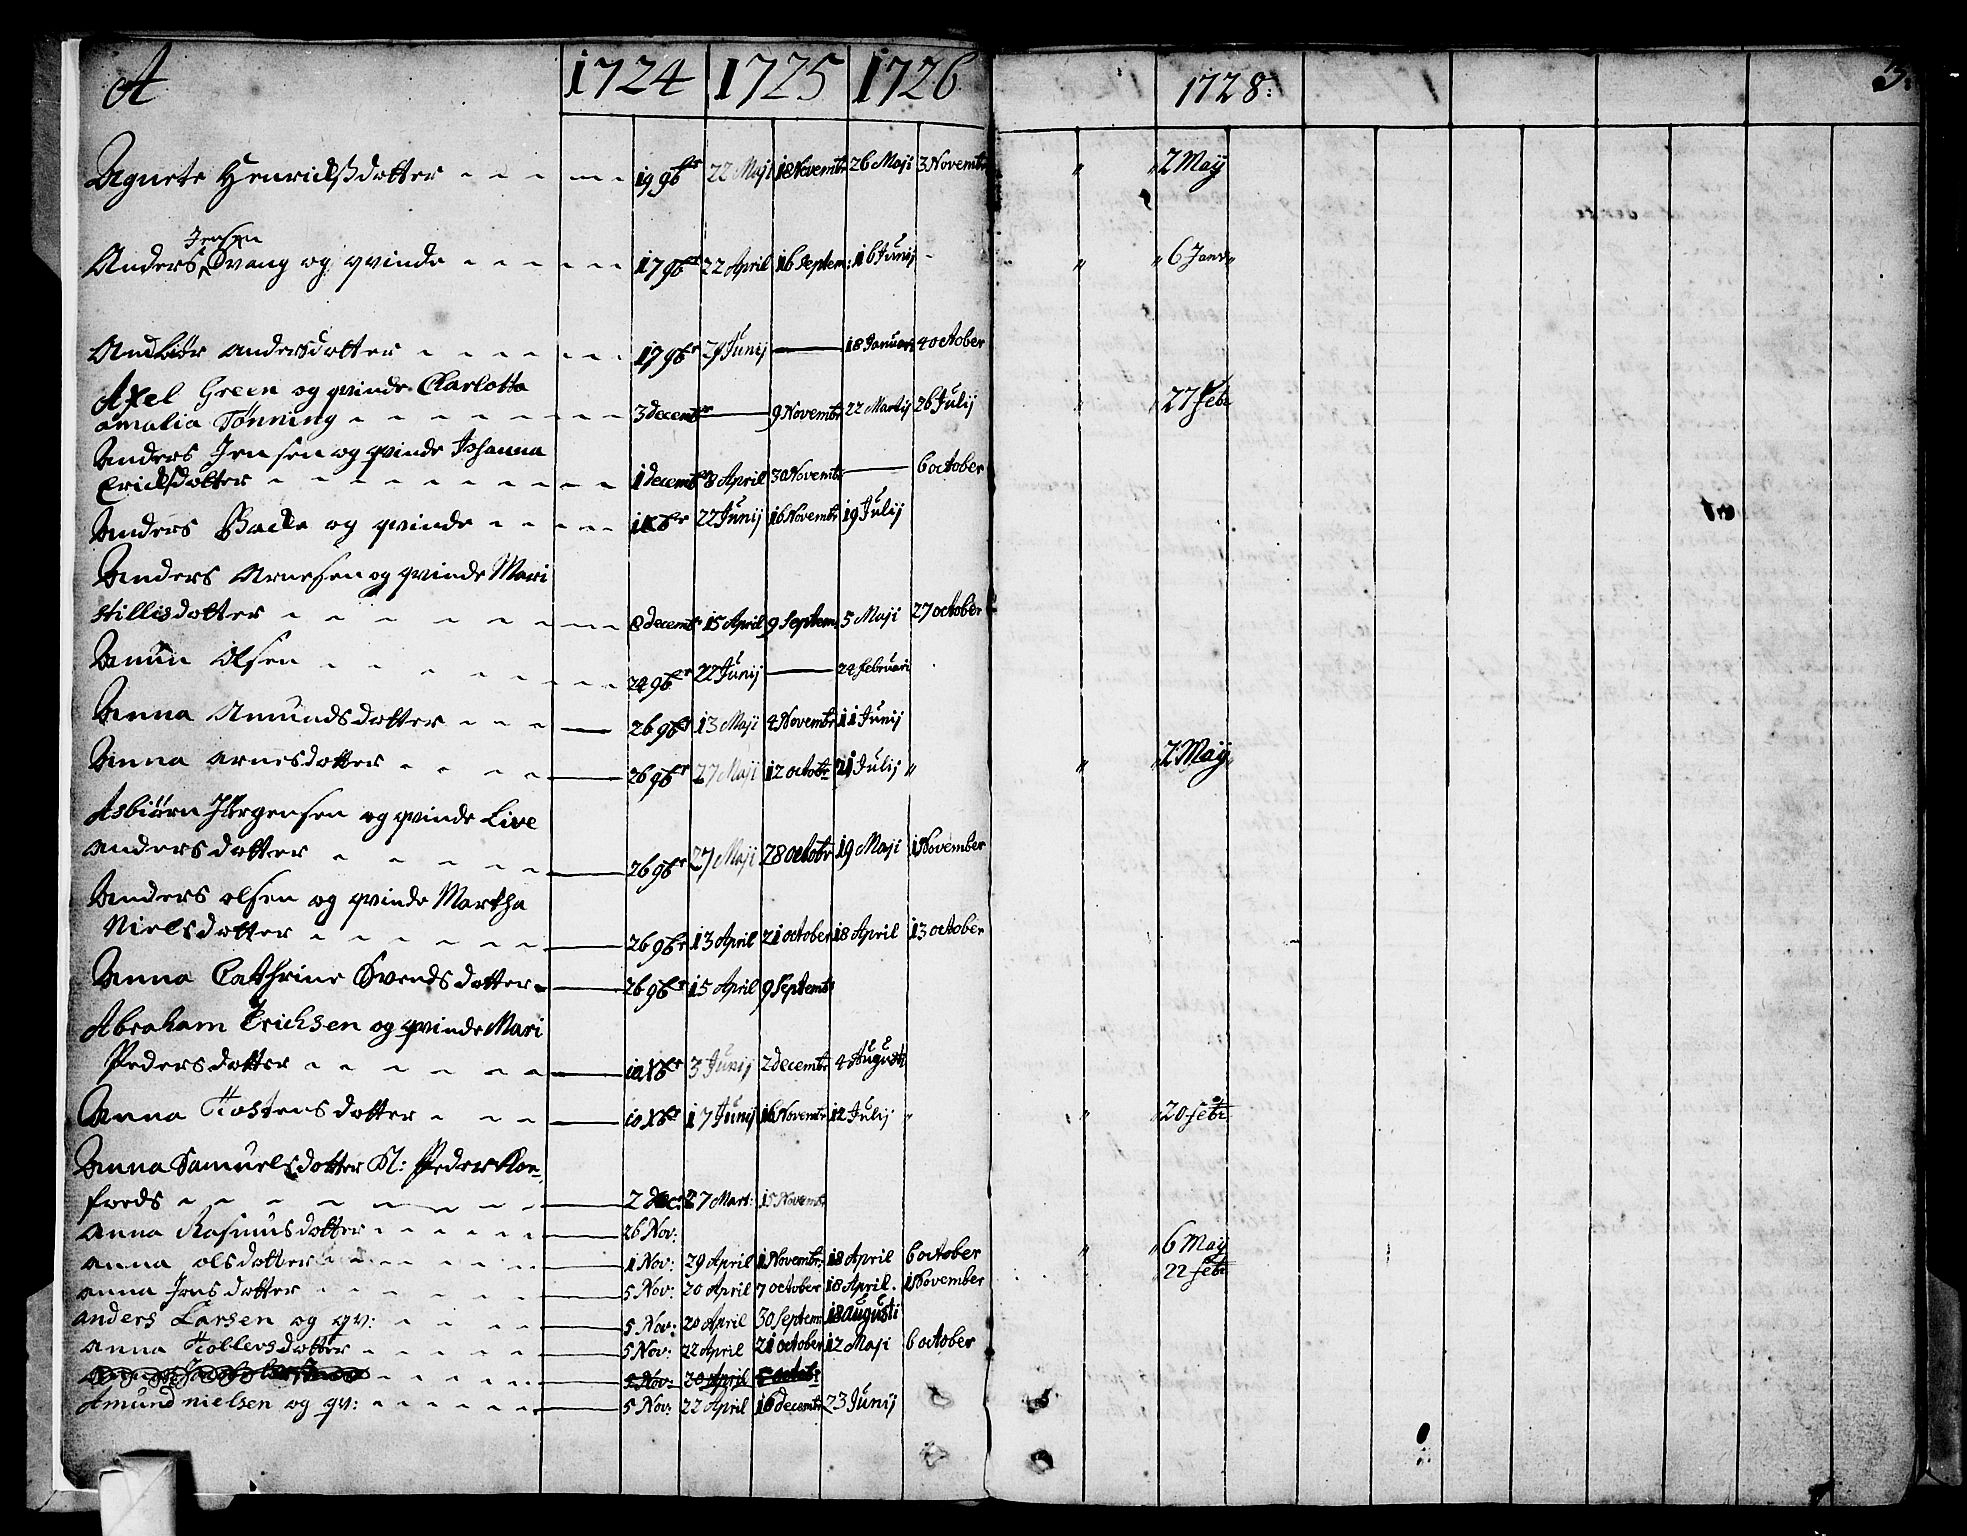 A 1724 1725 1726 1728: 3.
Agnete Henrichsdatter 19 9br 22 Maji 18 Novembr 26 Maji 3 Novembr „ „ 2 Maij
Jensen
Anders Svang og qvinde 17 9br 22 April 16 Septem: 16 Junij „ „ 6 Janv„
Andbiör andersdatter 17 9br 29 Junij — 18 Januari 4 october
Axel Green og qvinde Charlotta
amalia Tönning 3 decembr — 9 Novembr 22 Martij 26 Julij 27 febr
Anders Jensen og qvinde Johanna
Erichsdatter 1 decembr 8 April 30 Novembr — 6 october
Anders Backe og qvinde 1 Xbr 22 Junij 16 Novembr 19 Julij
Anders Arnesen og qvinde Mari
stillisdatter 8 decembr 15 April 9 Septem: 5 Maji 27 october
Amun olsen 24 9br 22 Junij — 24 februari
Anna Amundsdatter 26 9br 13 Maji 4 Novembr 11 Junij
Anna arnesdatter 26 9br 27 Maji 12 octobr 21 Julij „ „ „ 2 Maij„
Asbiörn Jörgensen og qvinde Live
andersdatter 26 9br 27 Maji 28 octobr 19 Maji 1 November
Anders olsen og qvinde Martha
Nielsdatter 26 9br 13 April 21 october 18 April 13 october
Anna Cathrine Svendsdatter 26 9br 15 April 9 Septembr
Abraham Erichsen og qvinde Mari
Pedersdatter 10 Xbr 3 Junij 2 decembr 4 Augusti
Anna Tostensdatter 10 Xbr 17 Junij 16 Novembr 12 Julij „ „ „ 20 febr
Anna Samuelsdatter Sl: Peder Kon-
fords 2 dec: 27 Mart: 15 Novembr
anna Rasmusdatter 26 Nov:
anna olsdatter 1 Nov: 29 April 1 Novembr: 18 April 6 october „ „ 6 Maij
anna Jonsdatter 5 Nov: 20 April 7 october 18 April. 1 November 22 febr
anders Larsen og qv: 5 Nov: 20 April 30 Septem: 18 augusti
anna Tollersdatter 5 Nov: 22 April 21 october 12 Maji 6 october
5 Nov: 20 April octob:
Amund nielsen og qv: 5 Nov: 22 April 16 decembr 23 Junij